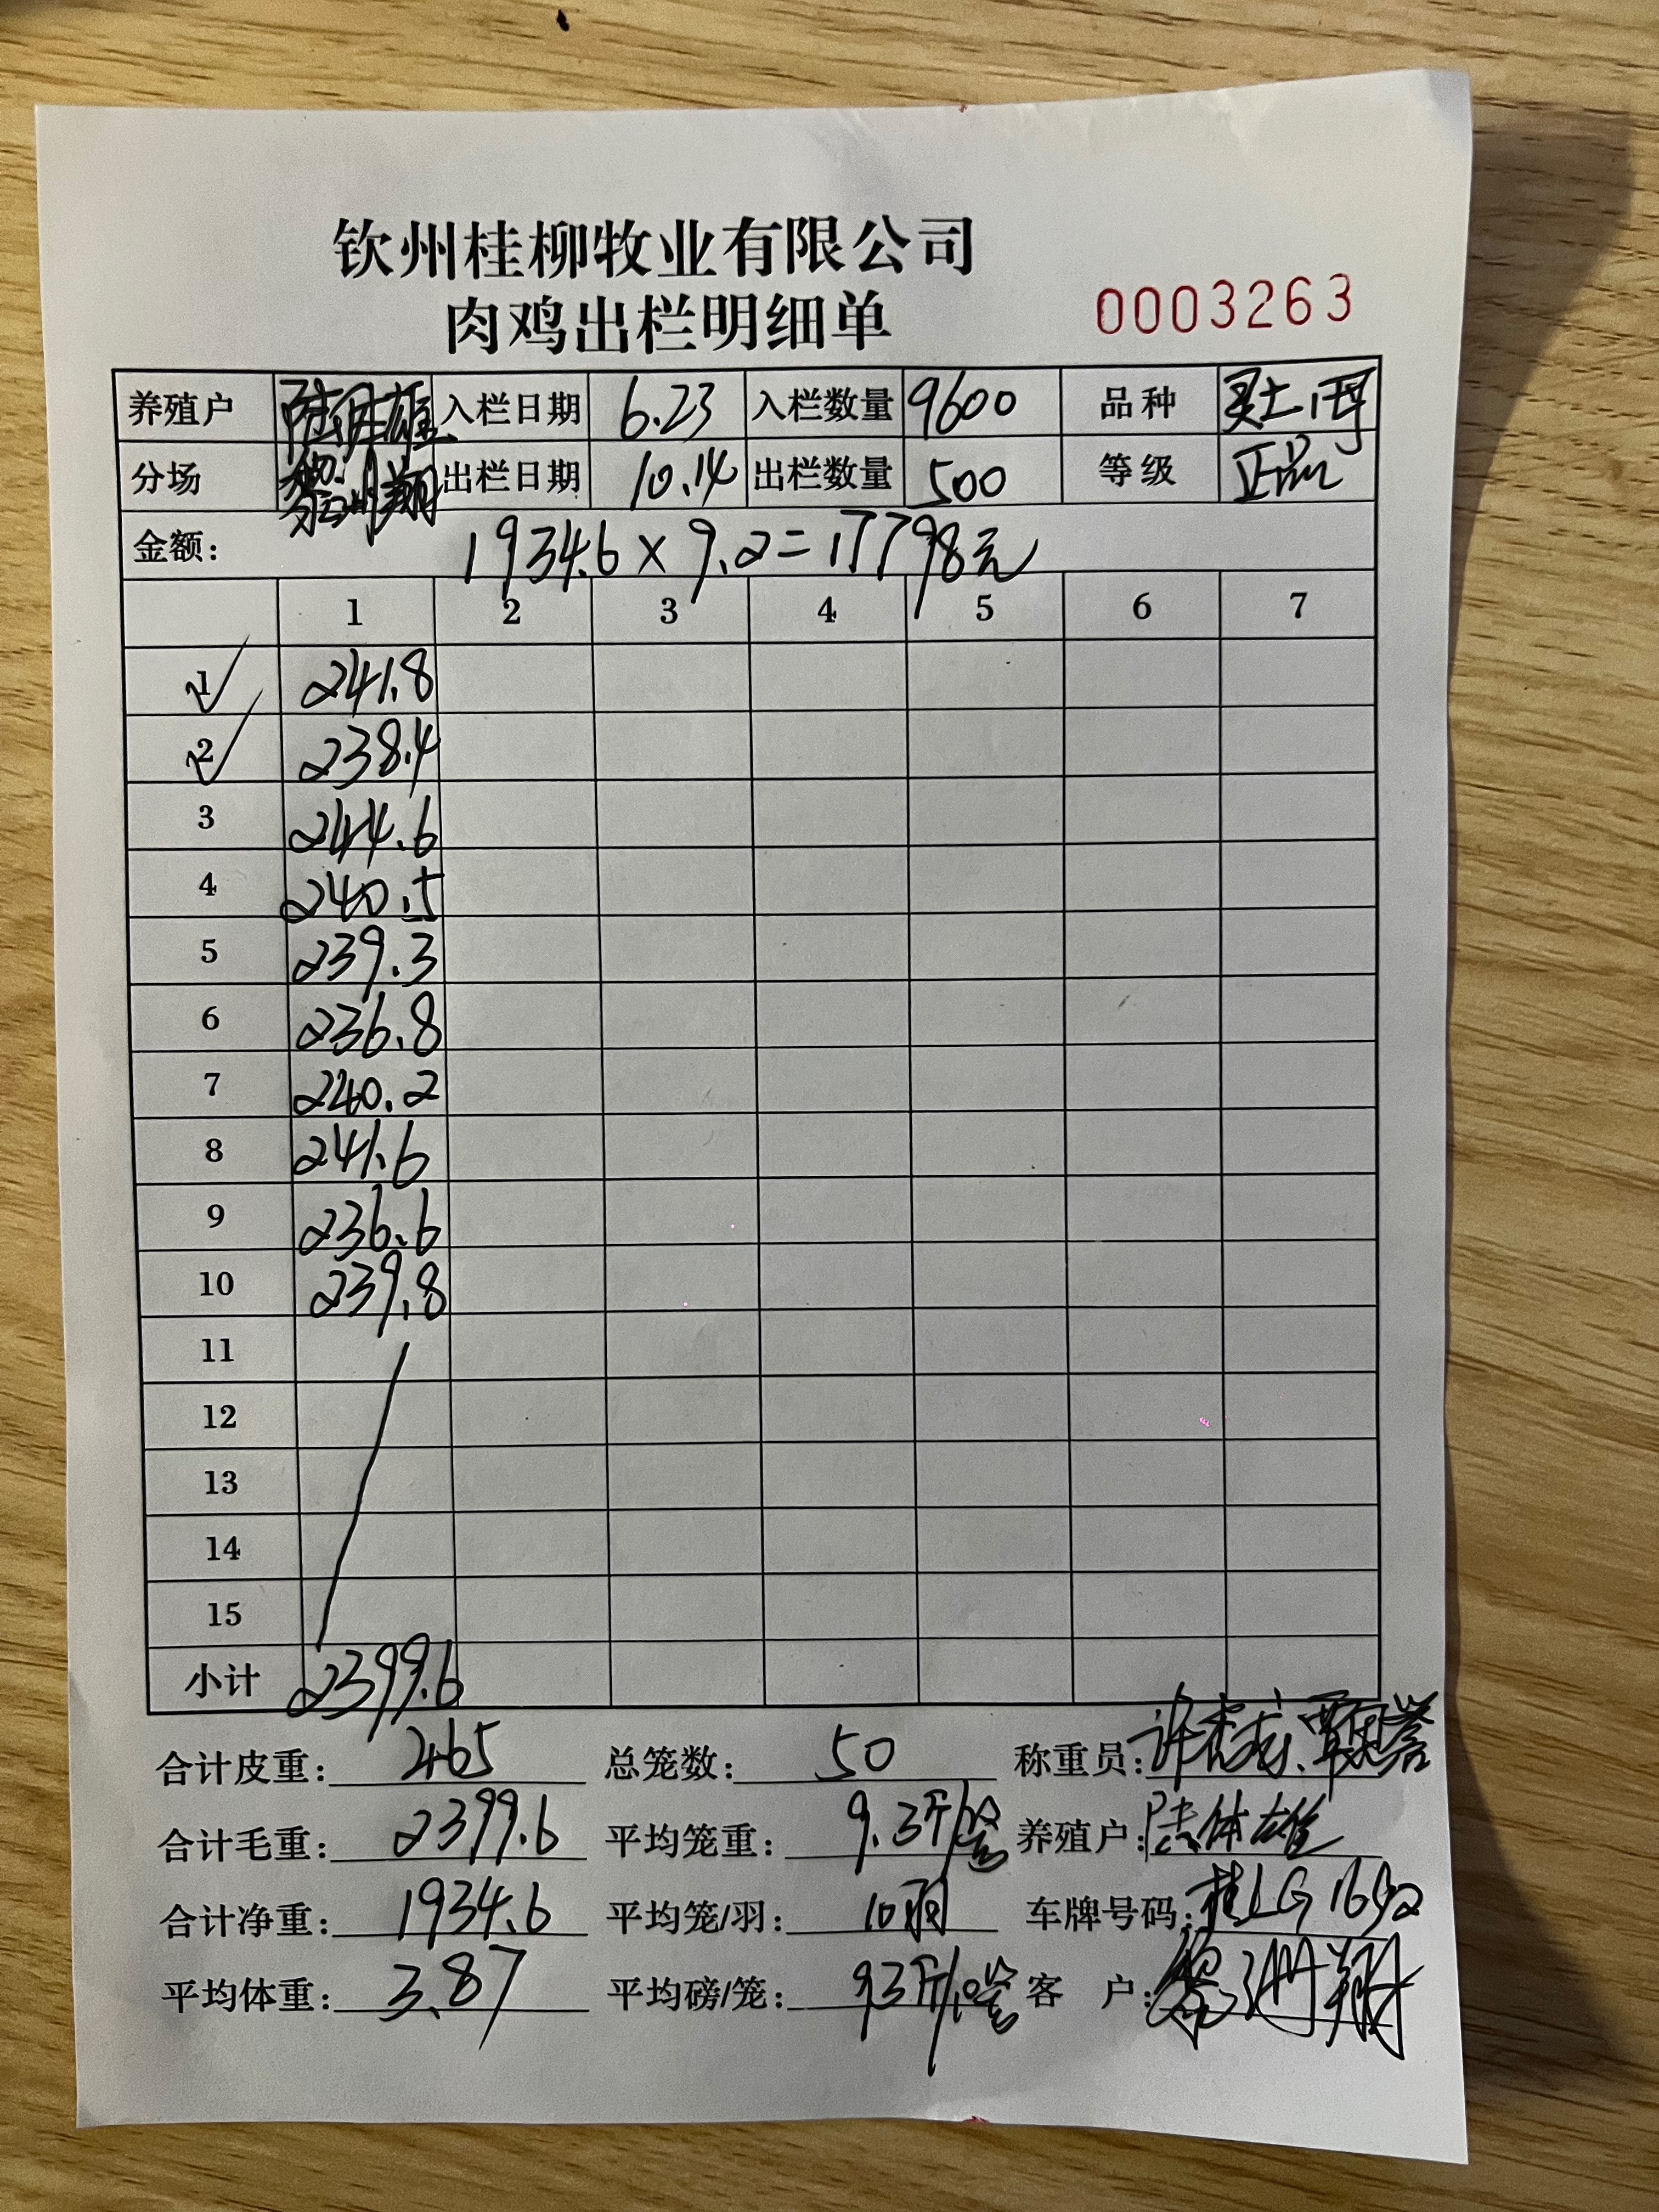 钦州桂柳牧业有限公司
肉鸡出栏明细单 0003263
养殖户 入栏日期 6.23 入栏数量 9600 品种
分场 出栏日期 10.14 出栏数量 500 等级 正品
金额: 1934.6×9.2=17798元
1 2 3 4 5 6 7
1 241.8
2 238.4
3 244.6
4 240.5
5 239.3
6 236.8
7 240.2
8 241.6
9 236.6
10 239.8
11
12
13
14
15
小计 2399.6
合计皮重: 465 总笼数: 50 称重员:
合计毛重: 2399.6 平均笼重: 9.3斤/笼 养殖户:
合计净重: 1934.6 平均笼/羽: 10羽 车牌号码: 桂LG1692
平均体重: 3.87 平均磅/笼: 93斤/ 客户: